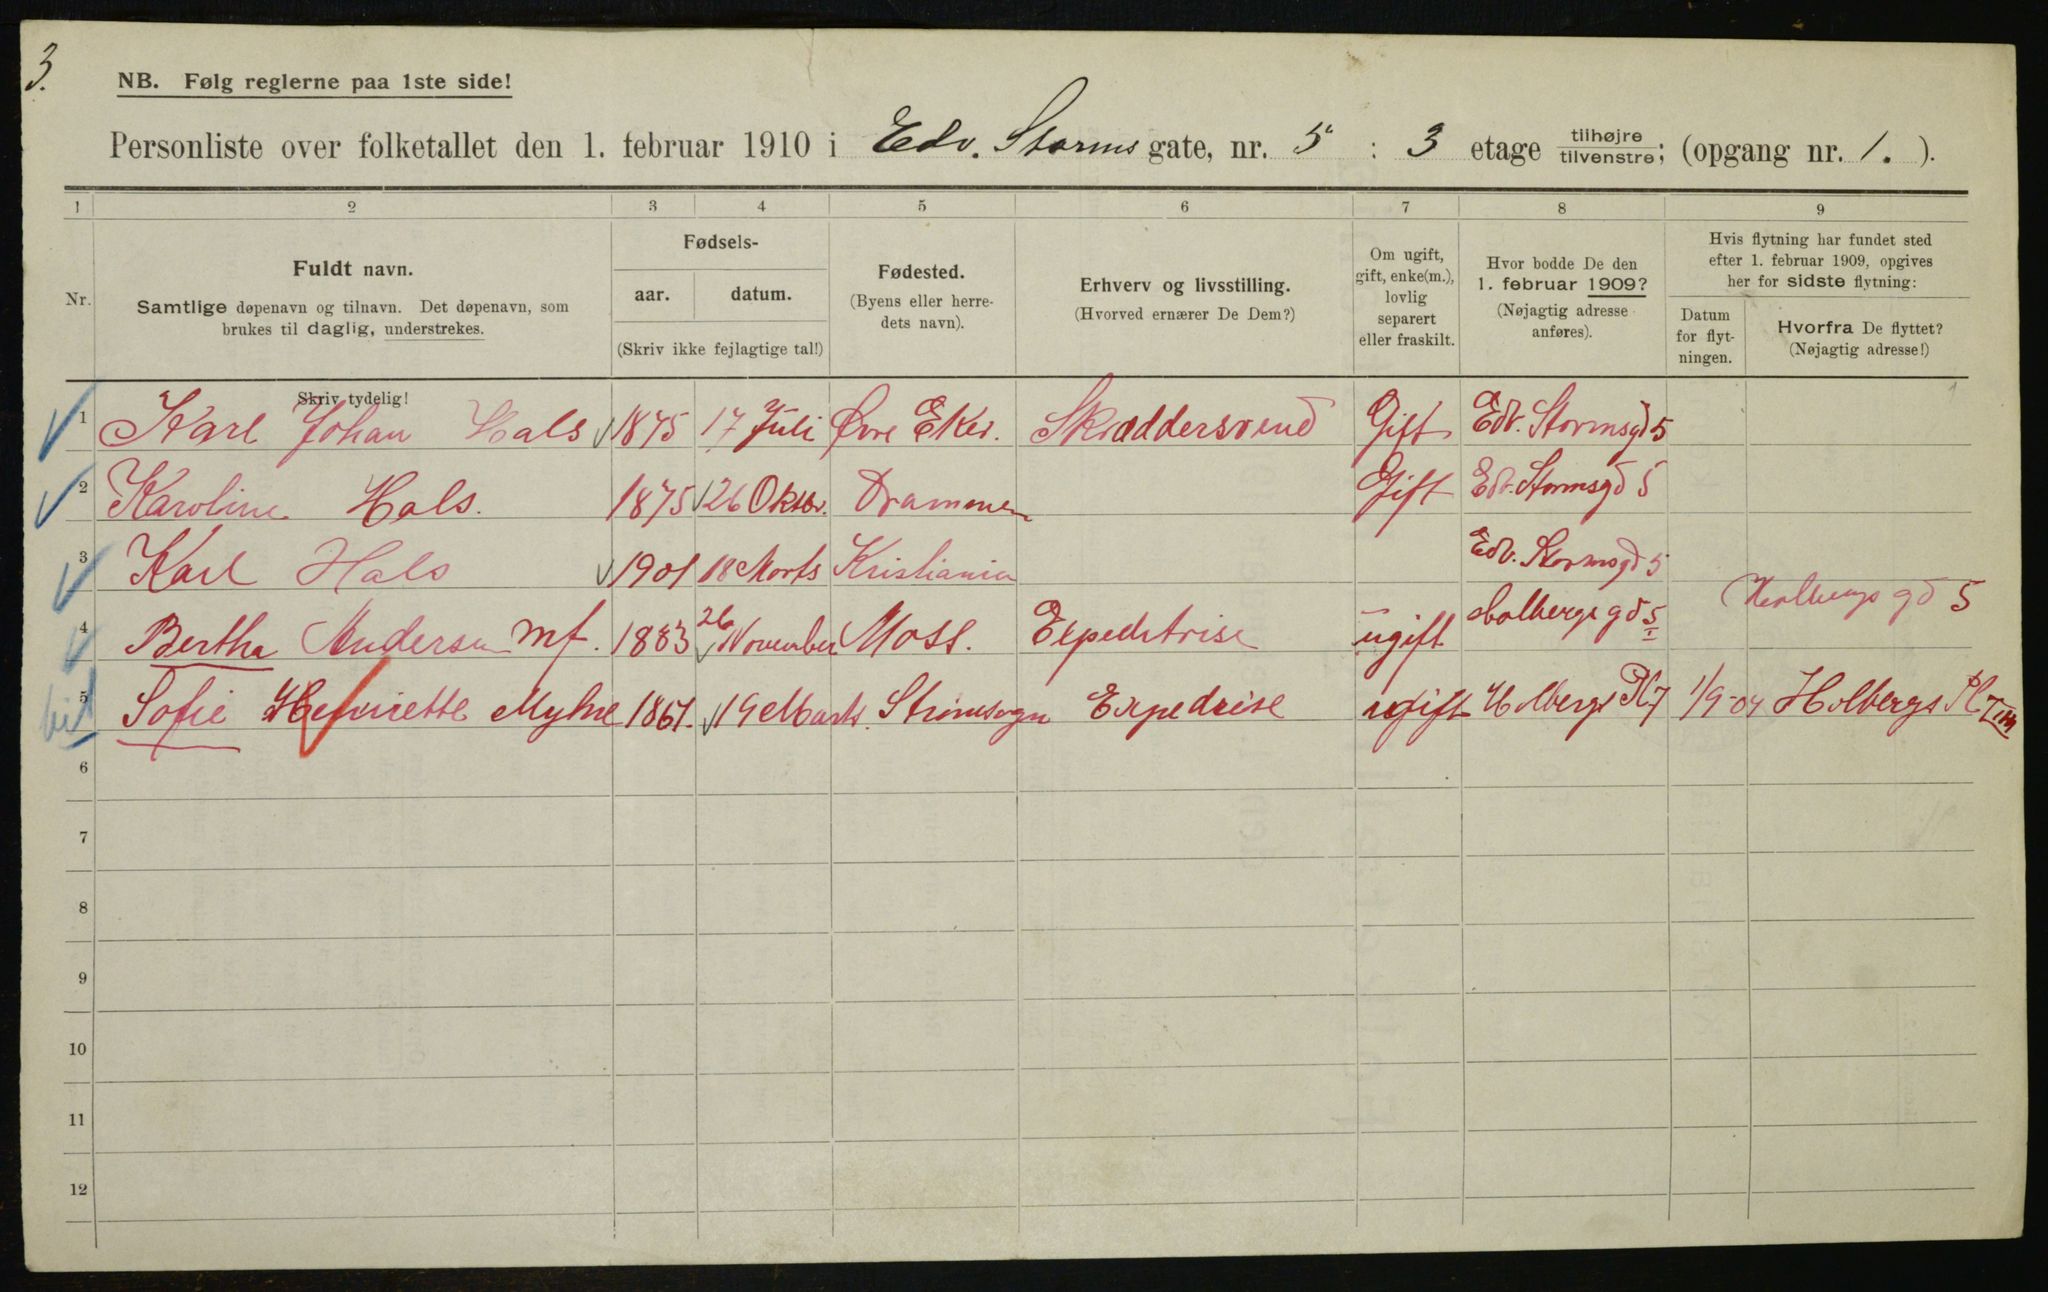 3.
NB. Følg reglerne paa 1ste side!
Personliste over folketallet den 1. februar 1910 i Edv. Storms gate, nr. 5 : 3 etage tilhøjre/tilvenstre; (opgang nr. 1. ).
1 2 3 4 5 6 7 8 9
Nr.
Fuldt navn.
Samtlige døpenavn og tilnavn. Det døpenavn, som
brukes til daglig, understrekes.
Skriv tydelig!
Fødsels-
aar. datum.
(Skriv ikke fejlagtige tal!)
Fødested.
(Byens eller herre-
dets navn).
Erhverv og livsstilling.
(Hvorved ernærer De Dem?)
Om ugift,
gift, enke(m.),
lovlig
separert
eller fraskilt.
Hvor bodde De den
1. februar 1909?
(Nøjagtig adresse
anføres).
Hvis flytning har fundet sted
efter 1. februar 1909, opgives
her for sidste flytning:
Datum
for flyt-
ningen.
Hvorfra De flyttet?
(Nøjagtig adresse!)
1 Karl Johan Hals 1875 17 Juli Øvre Eker. Skræddersvend Gift Edv. Stormsgd 5
2 Karoline Hals. 1875 26 Oktbr. Drammen Gift Edv. Stormsgd 5
3 Karl Hals 1901 18 Marts Kristiania Edv. Stormsgd 5
4 Bertha Andersen mf. 1883 26 November Moss. Expeditrise ugift Holbergs gd 5 I Holbergs gd 5
5 Sofie Henriette Myhre 1867. 19 Marts. Strømsogn Expedrise ugift Holbergs Pl. 7 1/9-04 Holbergs Pl 7 III
6
7
8
9
10
11
12